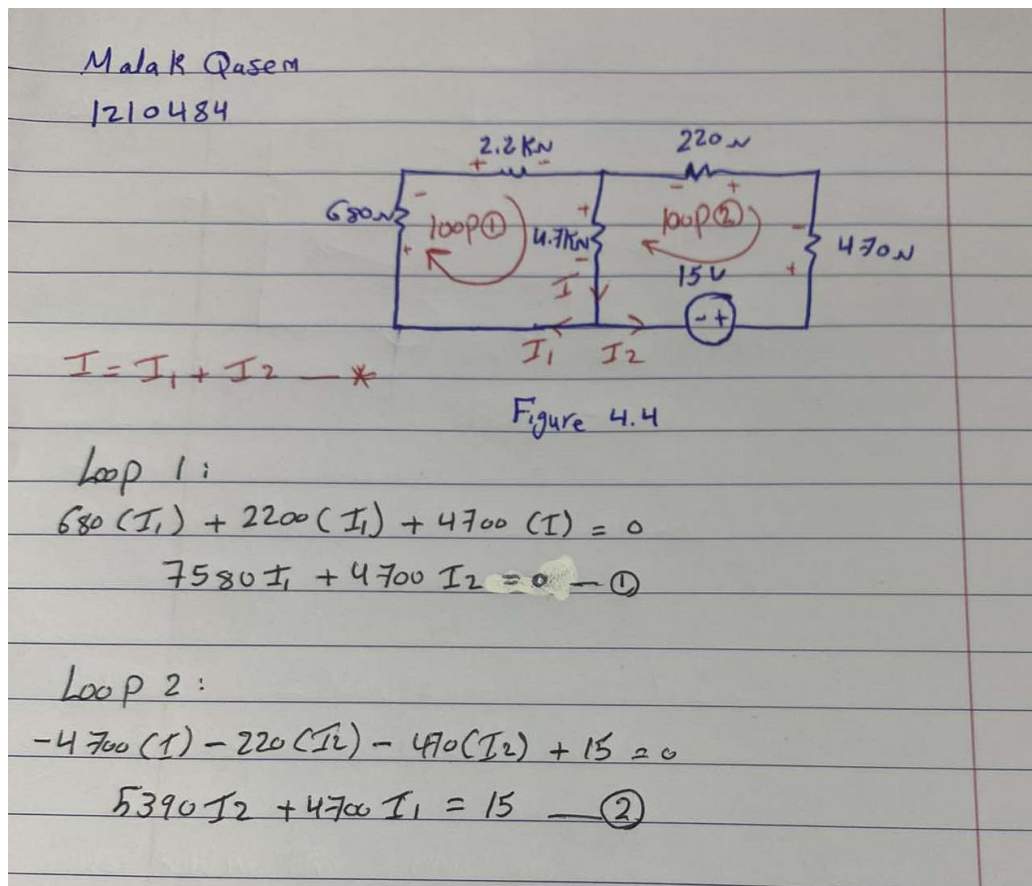 Malak Qasem
1210484
2.2KΩ 220Ω
+ - - +
680Ω - + loop① 4.7KΩ + - loop② - + 470Ω
15V
I - +
I1 I2
I = I1 + I2 — *
Figure 4.4
Loop 1:
680 (I1) + 2200 (I1) + 4700 (I) = 0
7580 I1 + 4700 I2 = 0 — ①
Loop 2:
-4700 (I) - 220 (I2) - 470 (I2) + 15 = 0
5390 I2 + 4700 I1 = 15 — ②